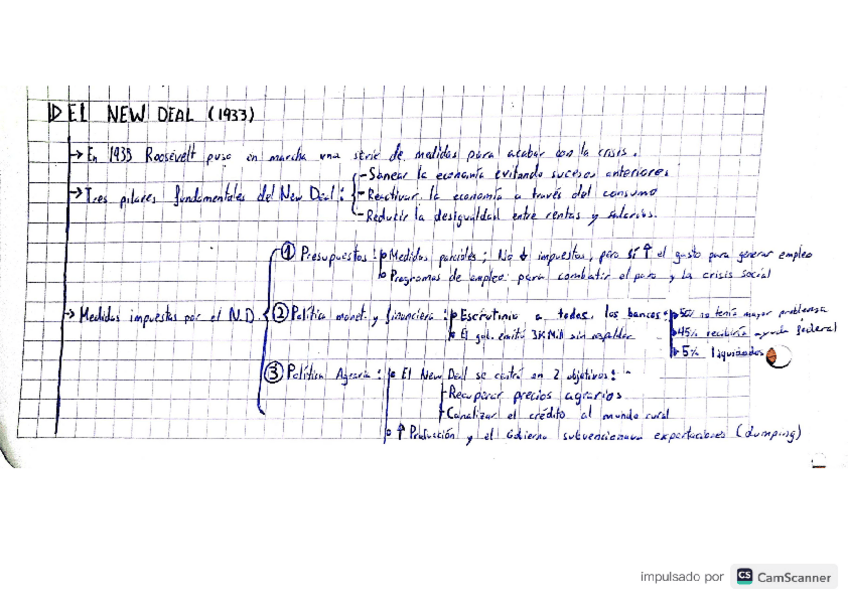 EL NEW DEAL (1933)
→ En 1933 Roosevelt puso en marcha una serie de medidas para acabar con la crisis.
→ Tres pilares fundamentales del New Deal:
- Sanear la economía evitando sucesos anteriores
- Reactivar la economía a través del consumo
- Reducir la desigualdad entre rentas y salarios.
→ Medidas impuestas por el N.D
① Presupuestos: Medidas parciales; No ↓ impuestos, pero sí ↑ el gasto para generar empleo
Programas de empleo: para combatir el paro y la crisis social
② Política monet. y financiera: Escrutinio a todos los bancos:
50% no tenía mayor problema
45% recibiría ayuda federal
5% liquidados
El gob. emitió 3K Mill sin respaldo
③ Política Agraria: El New Deal se centró en 2 objetivos:
- Recuperar precios agrarios
- Canalizar el crédito al mundo rural
↑ Producción y el Gobierno exportaciones (dumping)
impulsado por CS CamScanner